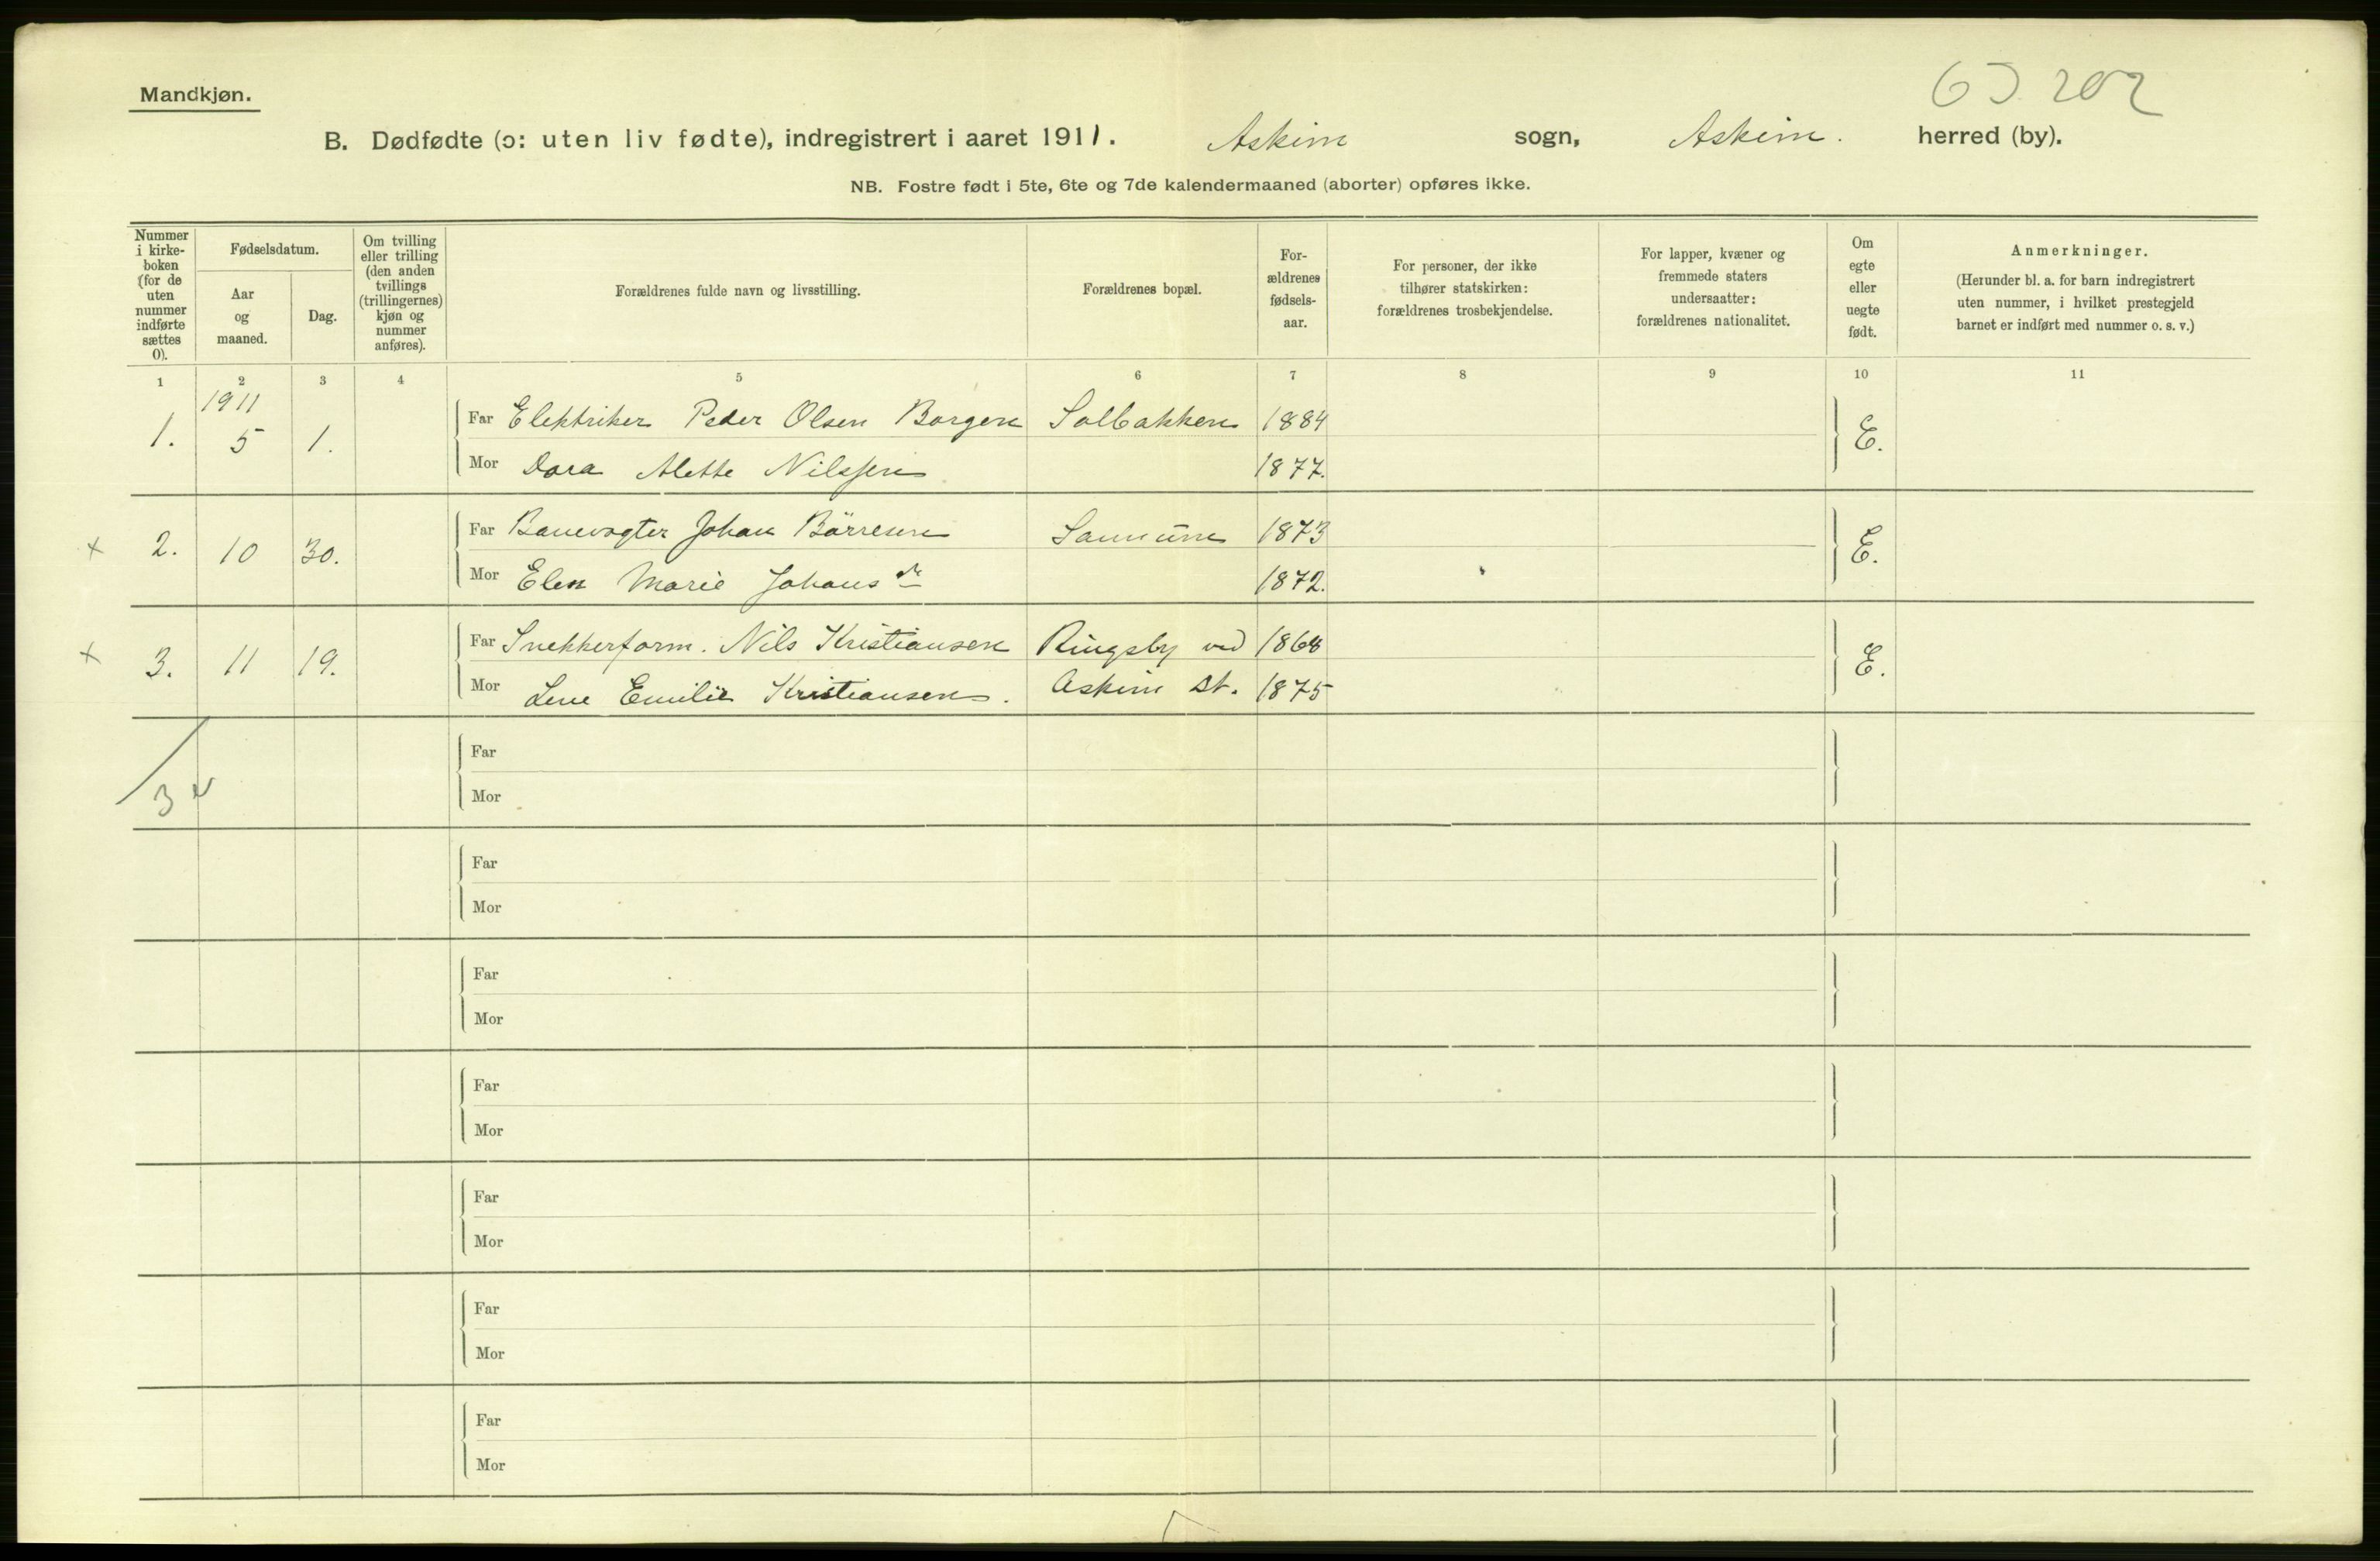 Mandkjøn.
202
B. Dødfødte (ɔ: uten liv fødte), indregistrert i aaret 1911. Askim sogn, Askim. herred (by).
NB. Fostre født i 5te, 6te og 7de kalendermaaned (aborter) opføres ikke.
Nummer
i kirke-
boken
(for de
uten
nummer
indførte
sættes
0).
Fødselsdatum.
Aar
og
maaned.
Dag.
Om tvilling
eller trilling
(den anden
tvillings
(trillingernes)
kjøn og
nummer
anføres).
Forældrenes fulde navn og livsstilling.
Forældrenes bopæl.
For-
ældrenes
fødsels-
aar.
For personer, der ikke
tilhører statskirken:
forældrenes trosbekjendelse.
For lapper, kvæner og
fremmede staters
undersaatter:
forældrenes nationalitet.
Om
egte
eller
uegte
født.
Anmerkninger.
(Herunder bl. a. for barn indregistrert
uten nummer, i hvilket prestegjeld
barnet er indført med nummer o. s. v.)
1 2 3 4 5 6 7 8 9 10 11
1911
1. 5 1. Far Elektriker Peder Olsen Borgen Solbakken 1884 E.
Mor Dora Alette Nilssen 1877.
x 2. 10 30. Far Banevogter Johan Börresen 1873 E.
Mor Elen Marie Johans dr 1872.
x 3. 11 19. Far Snekkerform. Nils Kristiansen Ringsby ved 1868 E.
Mor Lene Emilie Kristiansen. Askim st. 1875
Far
3 Mor
Far
Mor
Far
Mor
Far
Mor
Far
Mor
Far
Mor
Far
Mor